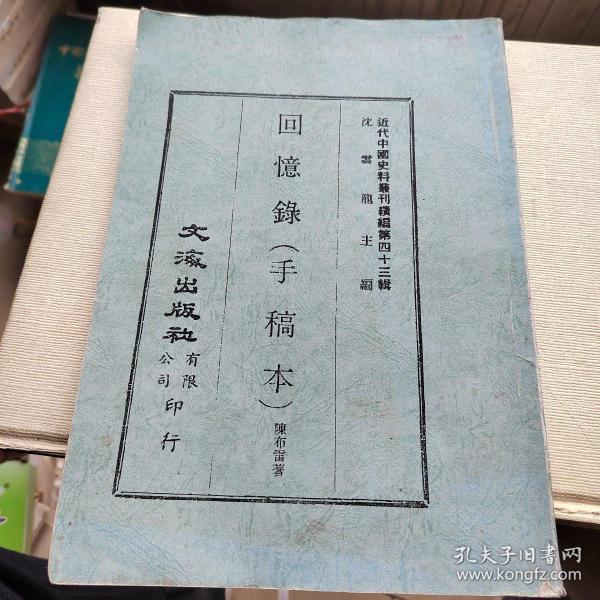 近代中國史料叢刊續編第四十三輯
沈雲龍主編
回憶錄(手稿本)
陳布雷著
文海出版社有限公司印行
孔夫子旧书网
www.kongfz.com